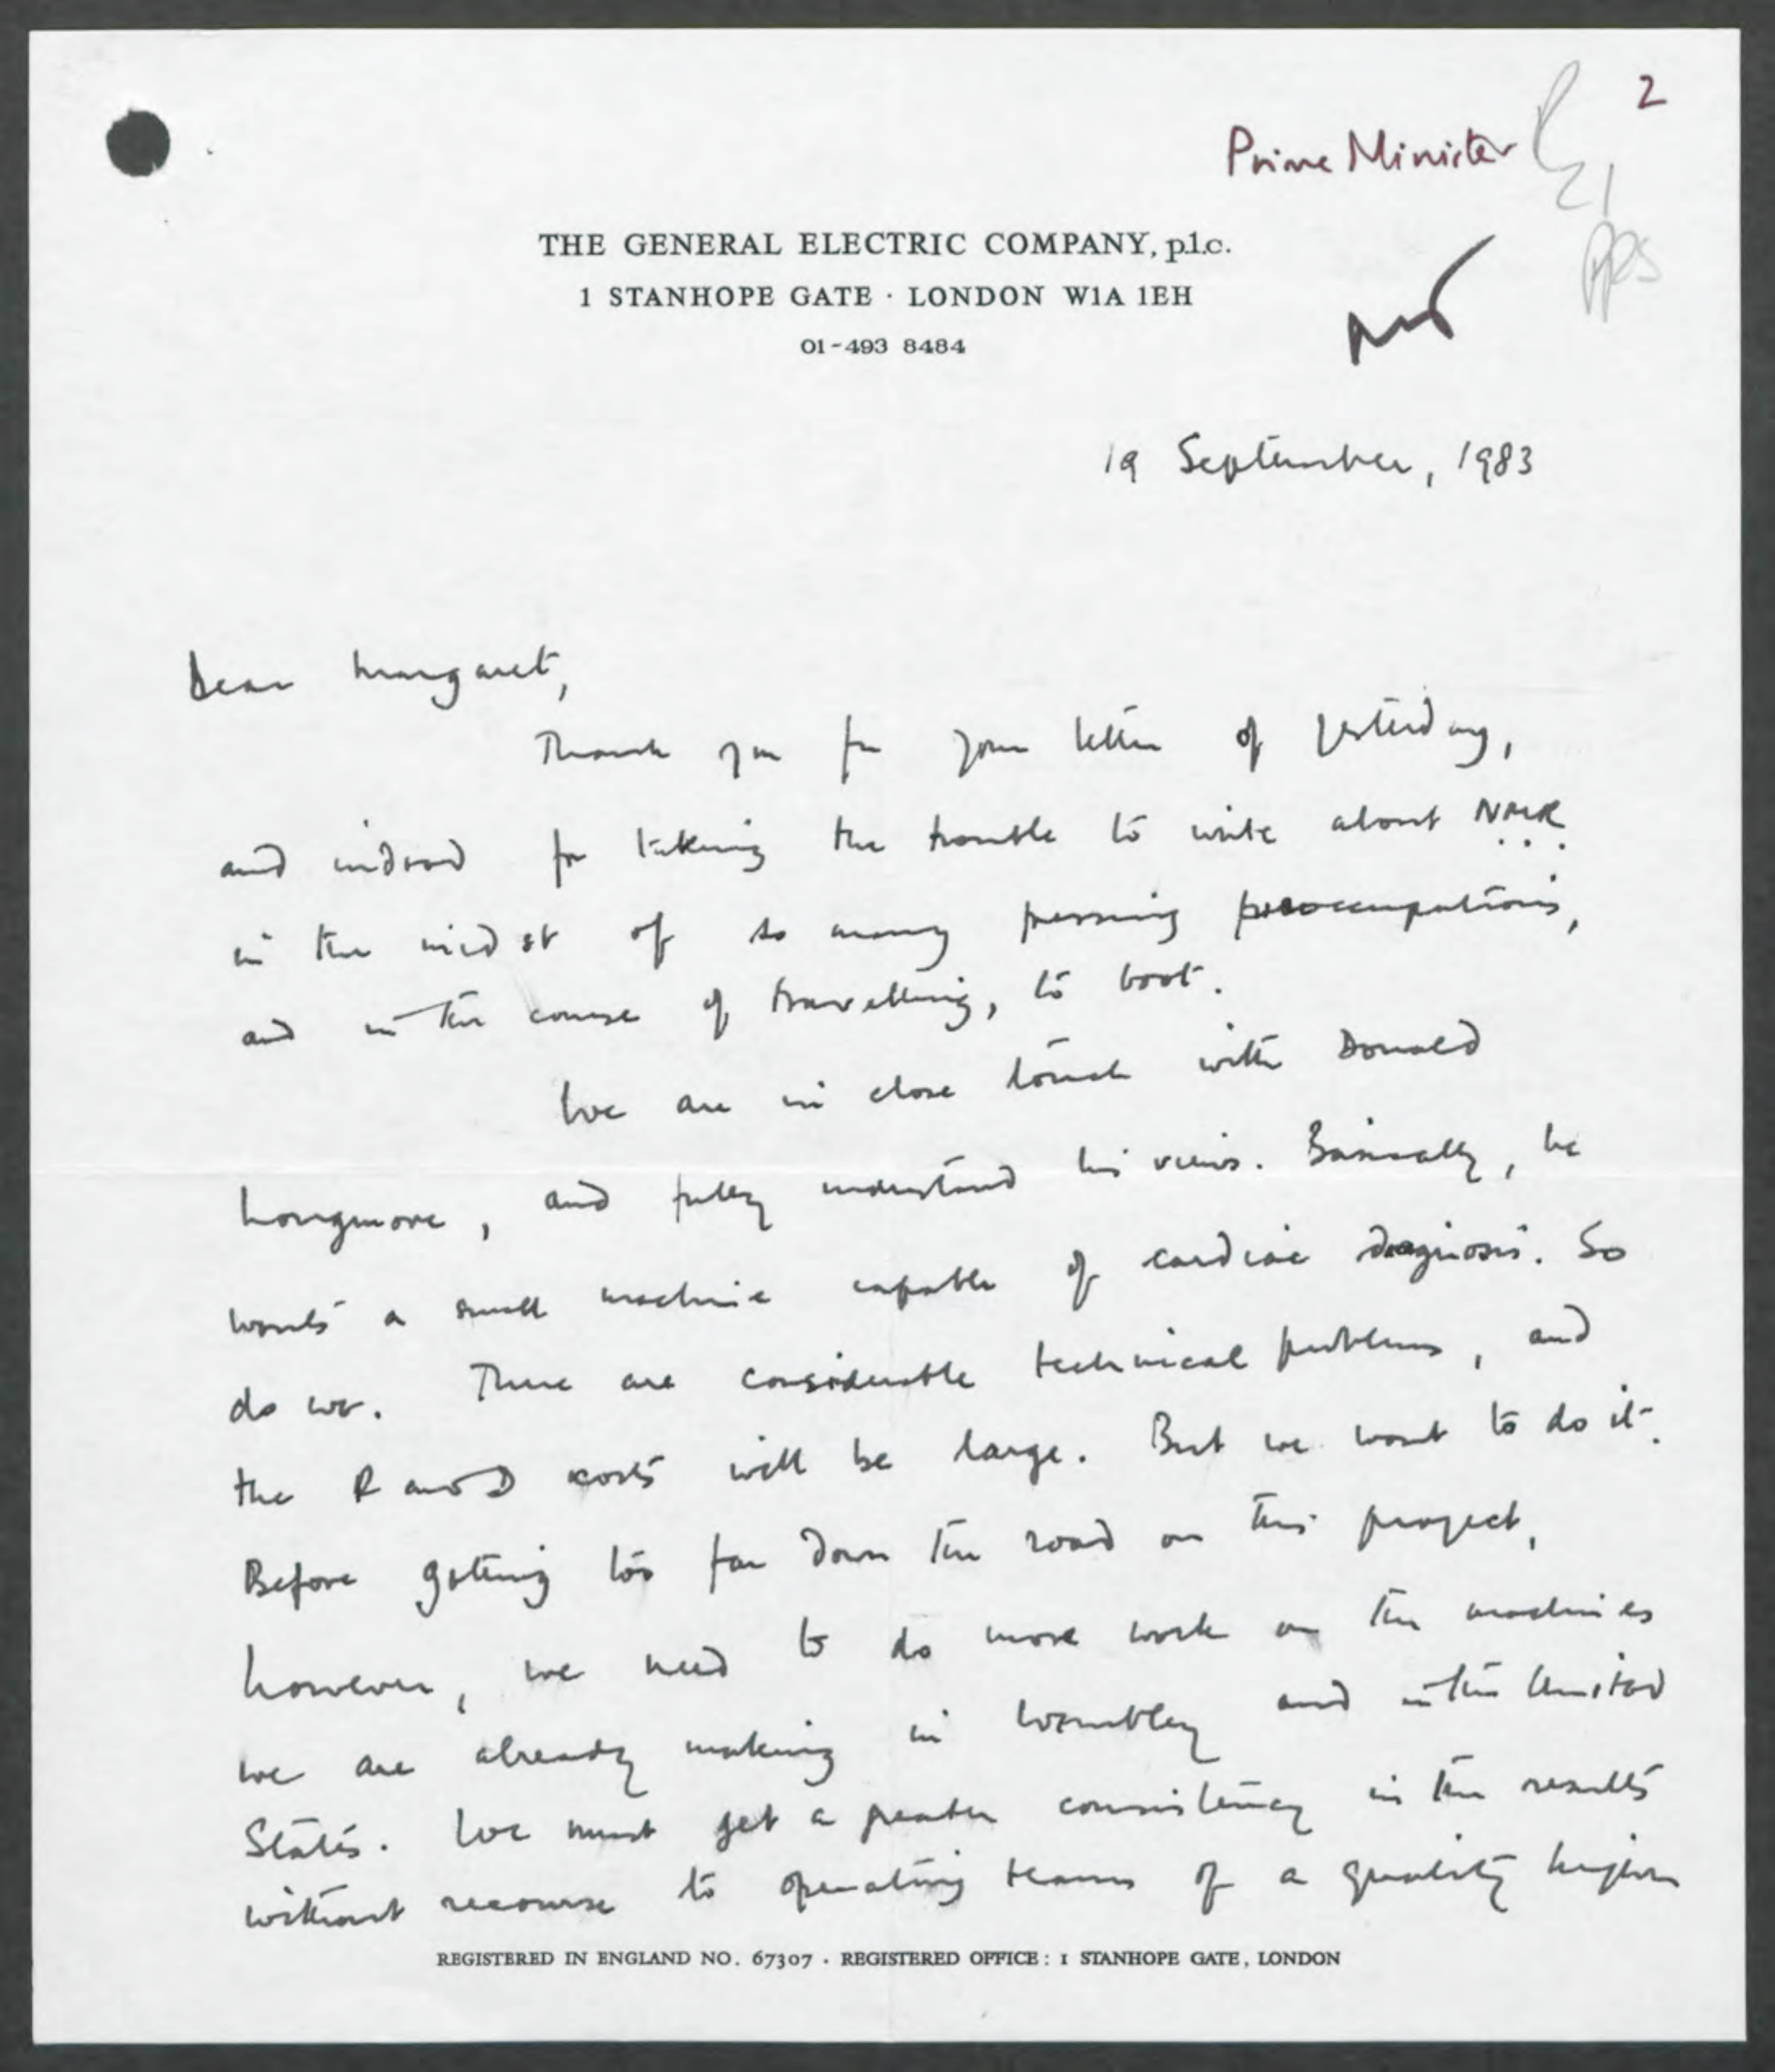 2
Prime Minister
THE GENERAL ELECTRIC COMPANY, p.l.c.
1 STANHOPE GATE · LONDON W1A 1EH
01-493 8484
19 September, 1983
Dear Margaret,
Thank you for your letter of yesterday,
and indeed for taking the trouble to write about NMR
in the midst of so many pressing preoccupations,
and in the course of travelling, to boot.
We are in close touch with Donald
Longmore, and fully understand his views. Basically, he
wants a small machine capable of cardiac diagnosis. So
do we. There are considerable technical problems, and
the R and D costs will be large. But we want to do it.
Before getting too far down the road on this project,
however, we need to do more work on the machines
we are already making in Wembley and in the United
States. We must get a greater consistency in the results
without recourse to operating teams of a quality higher
REGISTERED IN ENGLAND NO. 67307 · REGISTERED OFFICE: 1 STANHOPE GATE, LONDON